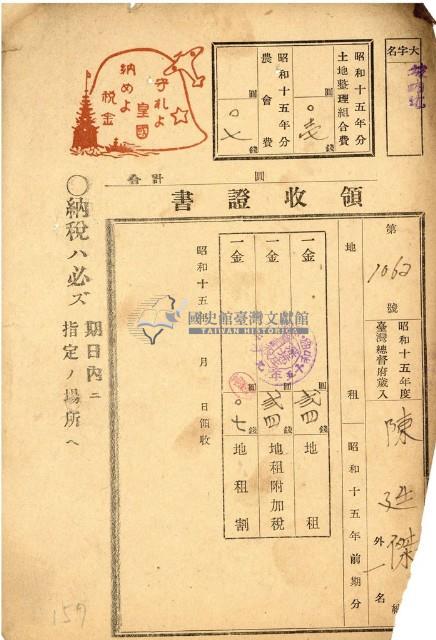 大字名
昭和十五年分
土地整理組合費
圓
〇壱
錢
昭和十五年分
農會費
圓
〇七
錢
守れよ
皇國
納めよ
税金
計會
圓
領收證書
第1062號
昭和十五年度
臺灣總督府歲入
陳廷傑
外一名
地租
昭和十五年前期分
一金
圓
弐四
錢
地租
一金
圓
弐四
錢
地租附加税
一金
圓
〇七
錢
地租割
昭和十五年 月 日領收
〇納税ハ必ズ期日內ニ指定ノ場所ヘ
國史館臺灣文獻館
TAIWAN HISTORICA
159